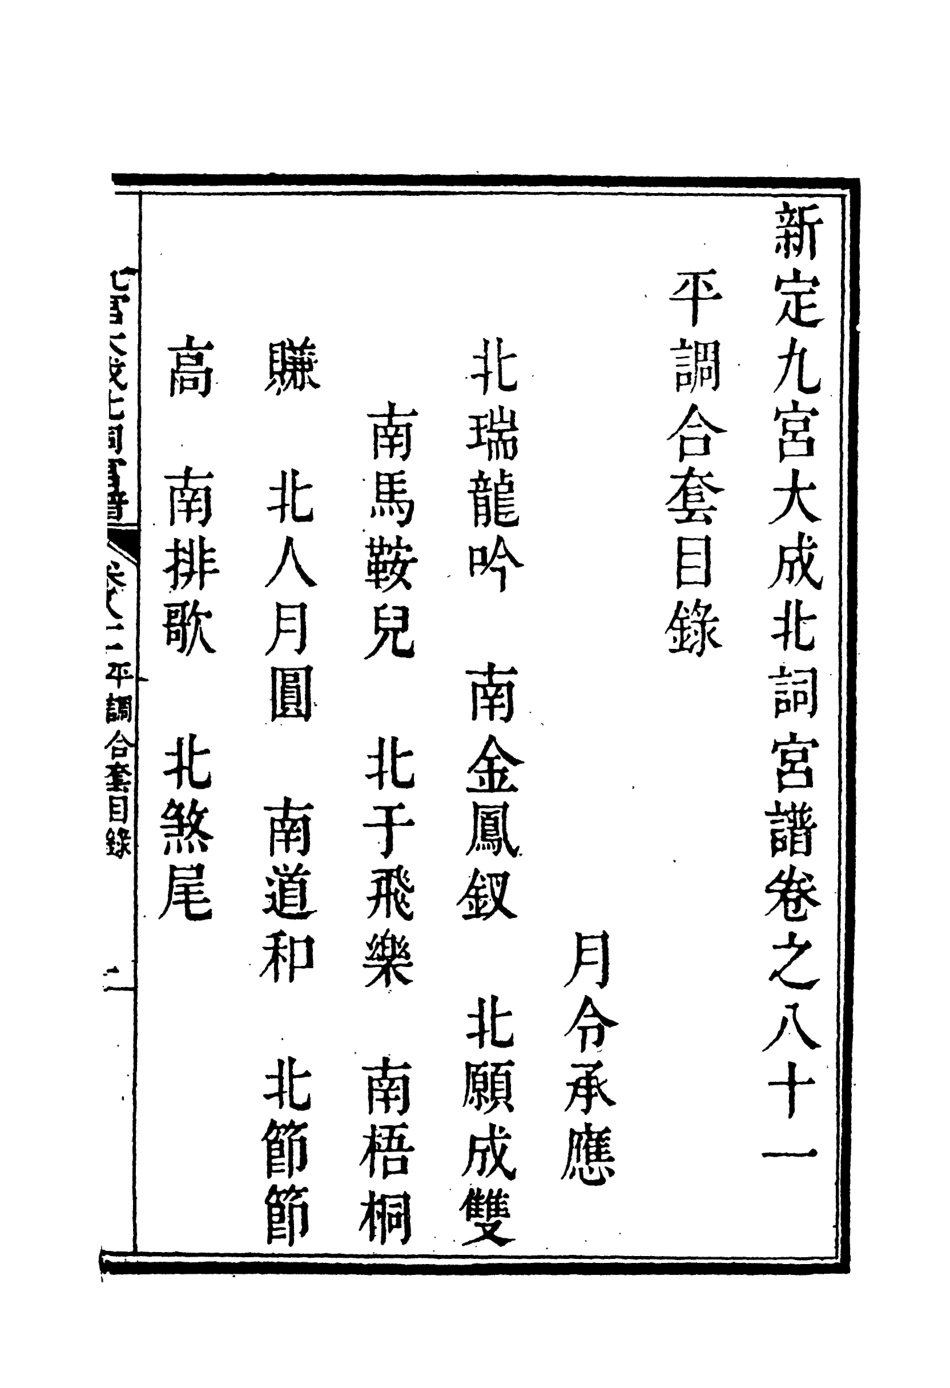 新定九宮大成北詞宮譜卷之八十一
平調合套目錄
月令承應
北瑞龍吟　南金鳳釵　北願成雙
南馬鞍兒　北于飛樂　南梧桐
賺　北人月圓　南道和　北節節
高　南排歌　北煞尾
平調合套目錄